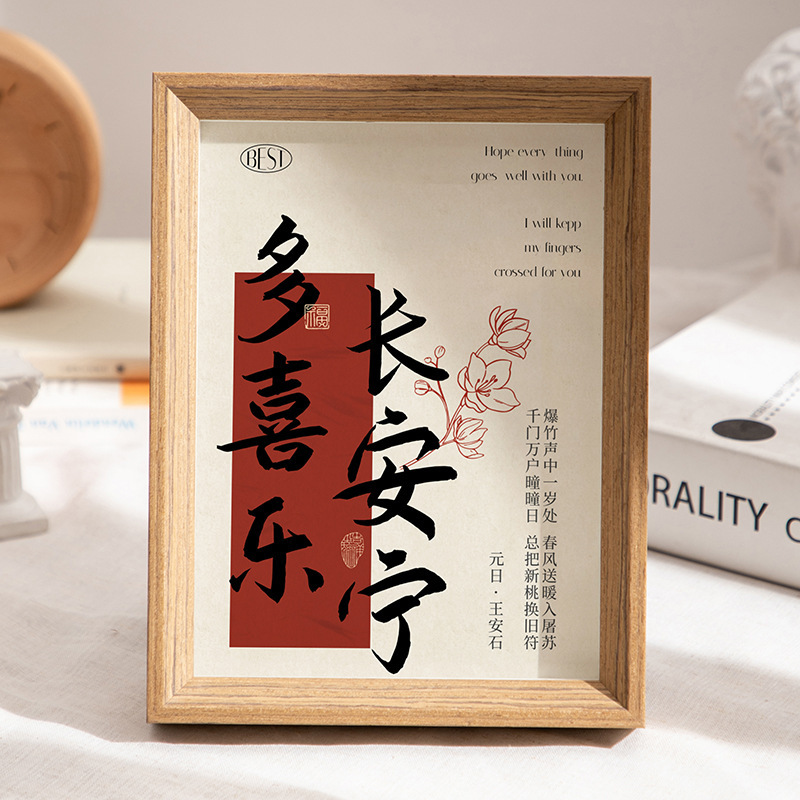 BEST
Hope every thing
goes well with you.
I will kepp
my fingers
crossed for you
多喜乐
长安宁
福
爆竹声中一岁处 春风送暖入屠苏
千门万户曈曈日 总把新桃换旧符
元日·王安石
RALITY